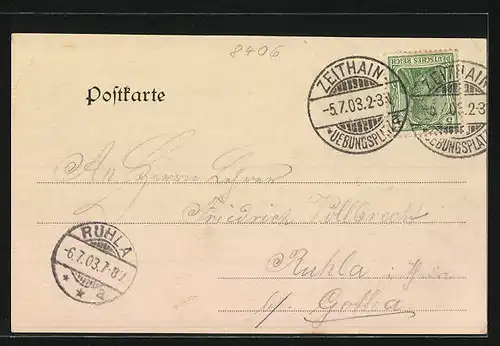 8406
Postkarte
ZEITHAIN
-5.7.03.2-3
*UEBUNGSPLATZ
DEUTSCHES REICH
5
ZEITHAIN
5.7.03.2-3
UEBUNGSPLATZ
An Herrn Lehrer
Friedrich Vollbrecht
Ruhla i. Thür
b/ Gotha
RUHLA
-6.7.03.7-8V.
* * a